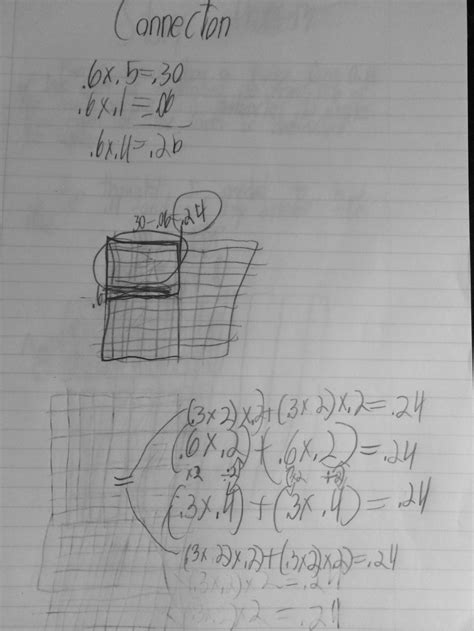 Connecton
.6x.5=.30
.6x.1=.06
.6x.4=.26
.30-.06=.24
.6
(.3x2)x.2+(.3x2)x.2=.24
(.6x.2)+(.6x.2)=.24
x2 ÷2 ÷2
(.3x.4)+(.3x.4)=.24
=
(.3x.2)x.2)+(.3x2x2)=.24
(.3x.2)x2=.24
x2=.24